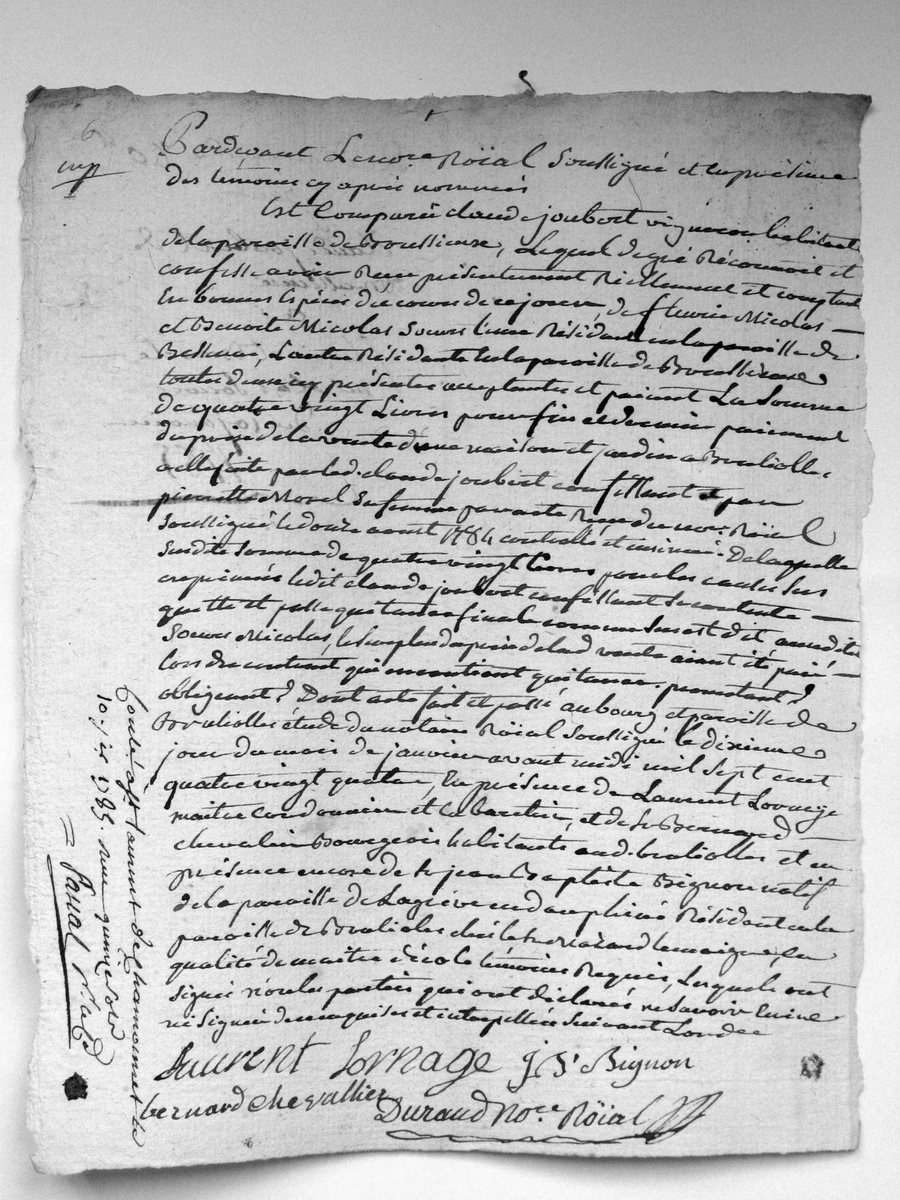 6
Pardevant Le nore Röial Soussigné et en présence
des témoins cy après nommés
Est Comparu claude joubert vigneron habitant
de la paroisse de Broussieuse, Lequel de gré Reconnoit et
confesse avoir Reçu présentement Réellement et comptant
En bonnes Espèces du cours de ce jour, de fleurie Nicolas
et Benoite Nicolas Soeurs l'une Résidante en la paroisse de
Bessenai, L'autre Résidante en la paroisse de Broussieuse
toutes deux cy présentes acceptantes et paient La Somme
de quatre vingt Livres pour fin et dernier paiement
du prix de la vente d'une maison et jardin a Brulliolles
a elle faite par led. claude joubert confessant et par
pierrette Morel sa femme par acte Reçu du nore. Röial
Soussigné le douze aoust 1784 controllé et insinué. De laquelle
susdite Somme de quatre vingt livres pour les causes sus
exprimées ledit claude joubert confessant se contente
quitte et passe quittance finale comme sus est dit auxdites
Soeurs Nicolas, le surplus du prix de lad. vente aiant été paié
lors du contrat qui en contient quitance. promettant?
obligeant? Dont acte fait et passé au bourg et paroisse de
Brulliolles étude du notaire Röial Soussigné le dixieme
jour du mois de janvier avant midi mil sept cent
quatre vingt quatre, En présence de Laurent Lornage
maitre cordonnier et cabaretier, et de Sr Bernard
chevalier Bourgeois habitants aud. brulliolles et en
présence encore de Sr jean Baptiste Bignon natif
de la paroisse de Lagrève en dauphiné Résidant en la
paroisse de Brullioles chés le Sr lemoigne, en
qualité de maitre d'école témoins Requis, Lesquels ont
signé non les parties qui ont déclaré ne savoir Ecrire
ni signer de ce enquises et interpellées suivant L'ordce
Laurent Lornage j S<sup>t</sup> Bignon
bernard chevallier
Durand No.re Röial
Controlé à St Laurent de Chamousset le
10 jer 1785. reçu quinze sols